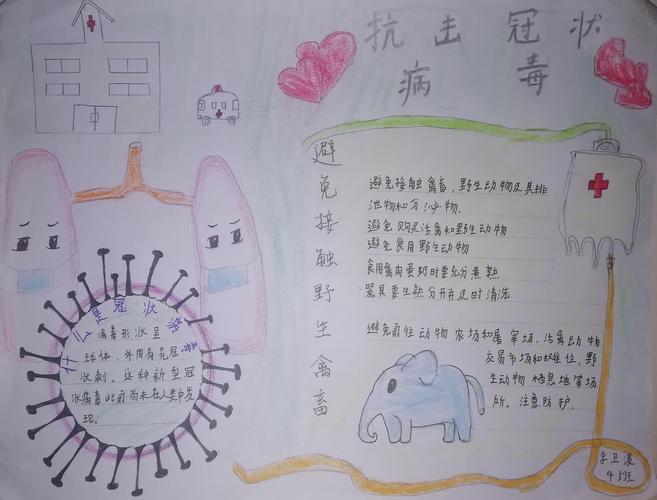 抗击冠状
病毒
避免接触野生禽畜
避免接触禽畜，野生动物及其排
泄物和分泌物.
避免购买活禽和野生动物
避免食用野生动物
食用禽肉蛋奶时要充分煮熟
器具要生熟分开并及时清洗
避免前往动物农场和屠宰场、活禽动物
交易市场和摊位、野
生动物栖息地等场
所。注意防护.
什么是冠状
病毒形状呈
球体、外周有花冠
状刺。这种新型冠
状病毒此前尚未在人类中发
现.
4班